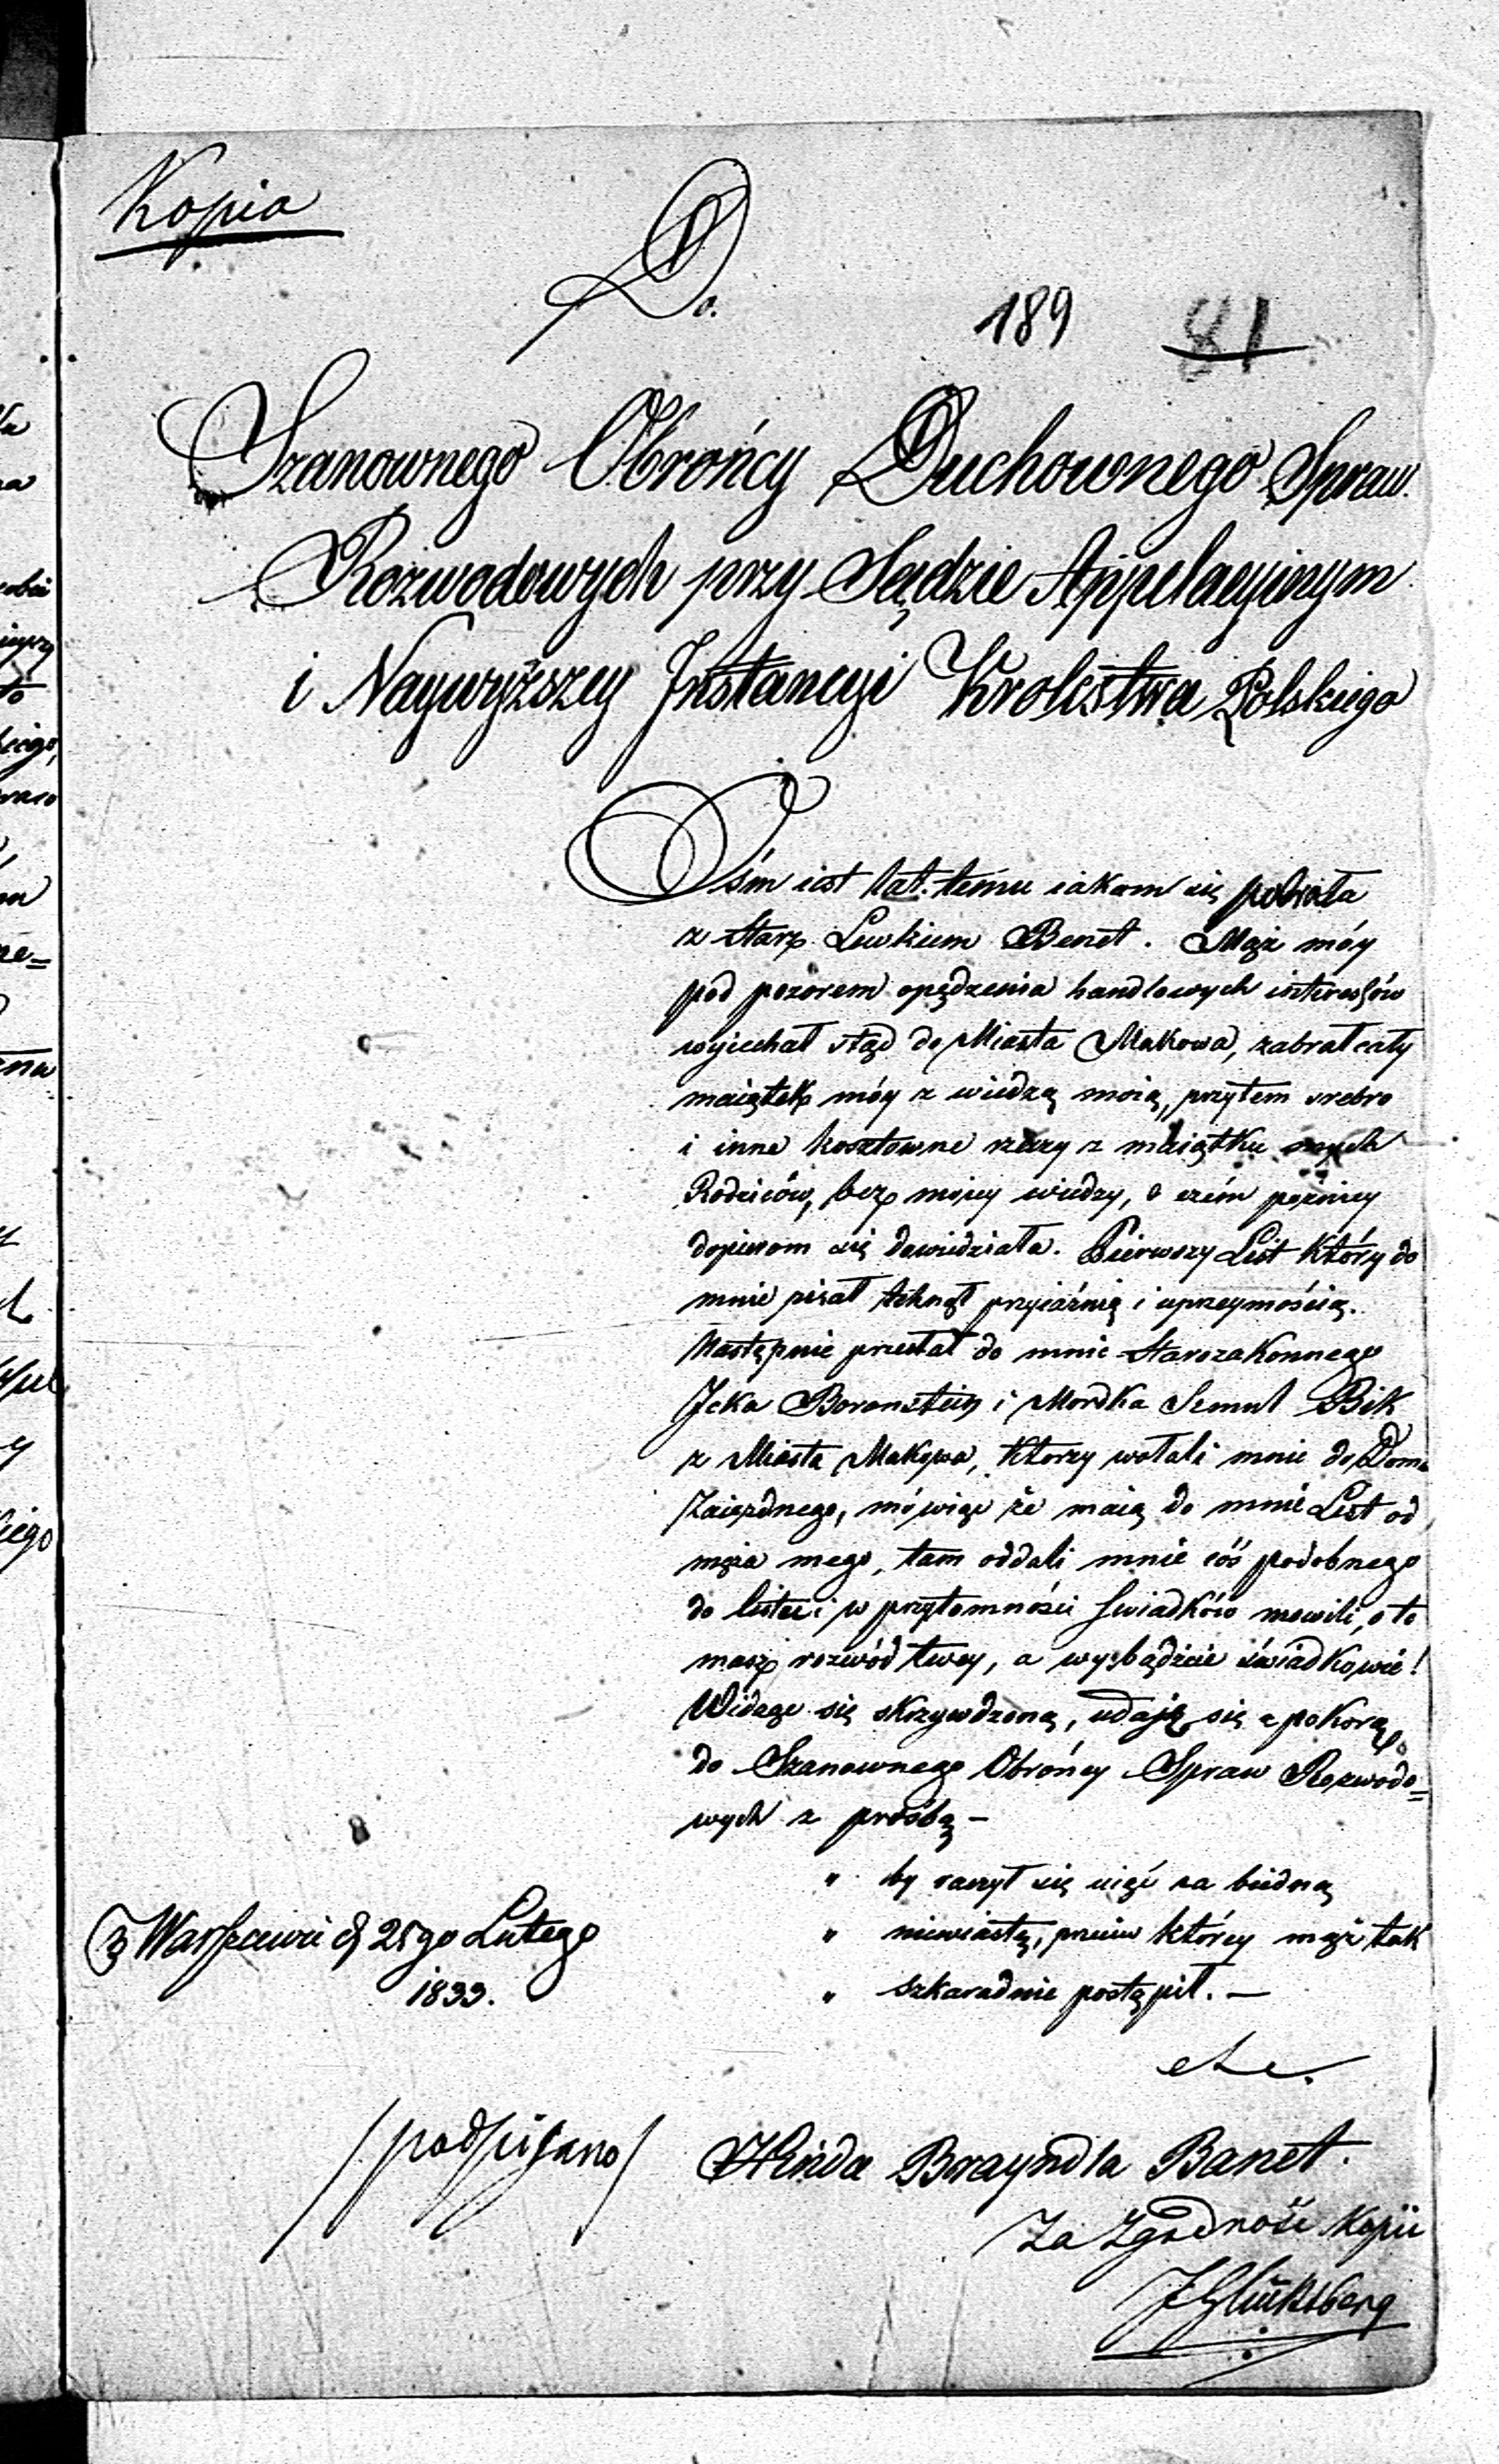 Kopia
Do.
189 81
Szanownego Obrońcy Duchownego Spraw.
Rozwodowych przy Sądzie Appelacyinym
i Naywyższey Instancyi Krolestwa Polskiego
Ośm iest lat temu iakem się pobrała
z Starz. Lewkiem Benet. Mąż móy
pod pozorem opędzenia handlowych interessów
wyiechał stąd do Miasta Makowa, zabrał cały
maiątek móy z wiedzą moią, przytem srebro
i inne kosztowne rzeczy z maiątku mych
Rodziców, bez moiey wiedzy, o czém pózniey
dopierom się dowiedziała. Pierwszy List który do
mnie pisał tchnął przyiaźnią i uprzeymością.
Następnie przesłał do mnie Starozakonnego
Icka Boronstein i Mordka Szmul Bik
z Miasta Makowa, którzy wołali mnie do Domu
Zaiezdnego, mówiąc że maią do mnie List od
męża mego, tam oddali mnie cóś podobnego
do listu i w przytomności swiadków mowili, oto
masz rozwód twóy, a wy bądzcie świadkowie!
Widząc się skrzywdzoną, udaję się z pokorą
do Szanownego Obrońcy Spraw Rozwodo=
wych z prośbą —
" by raczył się uiąć za biedną
" niewiastą, przeciw którey mąż tak
" szkaradnie postąpił. —
etc.
z Warszawy d 25go Lutego
1833.
/podpisano/ Hinda Brayndla Banet.
Za Zgodność Kopii
J Glüksberg